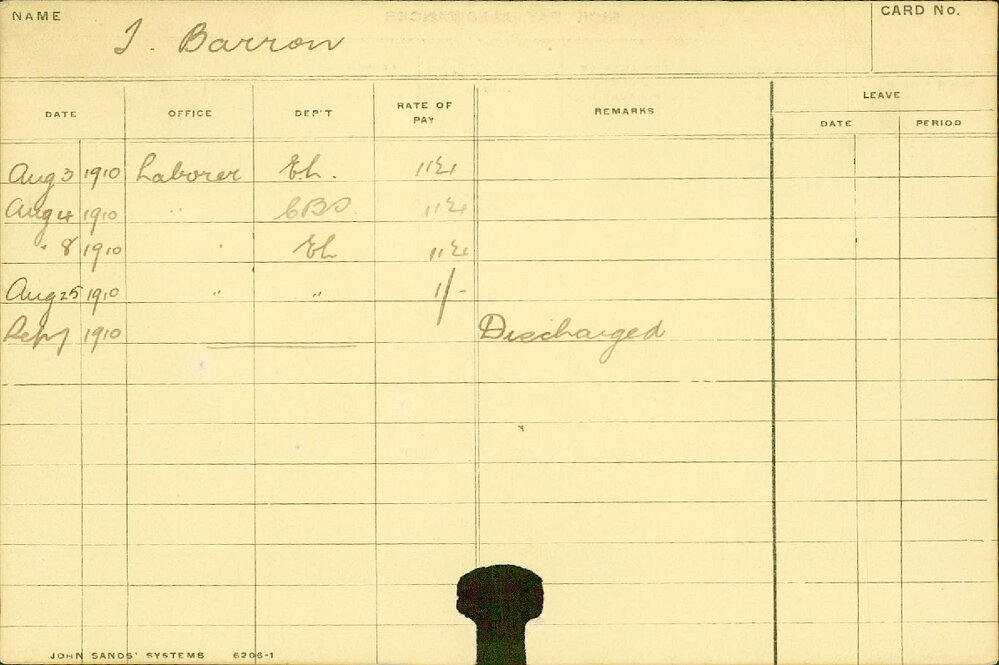 NAME J. Barron CARD No.
DATE OFFICE DEP'T RATE OF PAY REMARKS LEAVE
DATE PERIOD
Aug 3 1910 Laborer E.L. 11¼
Aug 4 1910 " CBS 11¼
" 8 1910 " EL 11¼
Aug 25 1910 " " 1/-
Sep 7 1910 Discharged
JOHN SANDS' SYSTEMS 6206-1